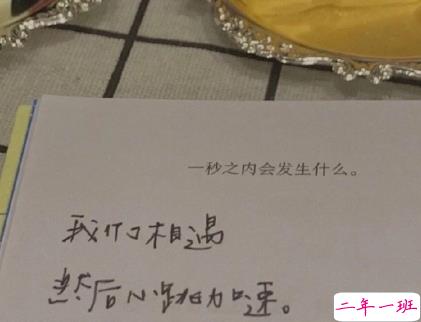 一秒之内会发生什么。
我们相遇
然后心跳加速。
二年一班